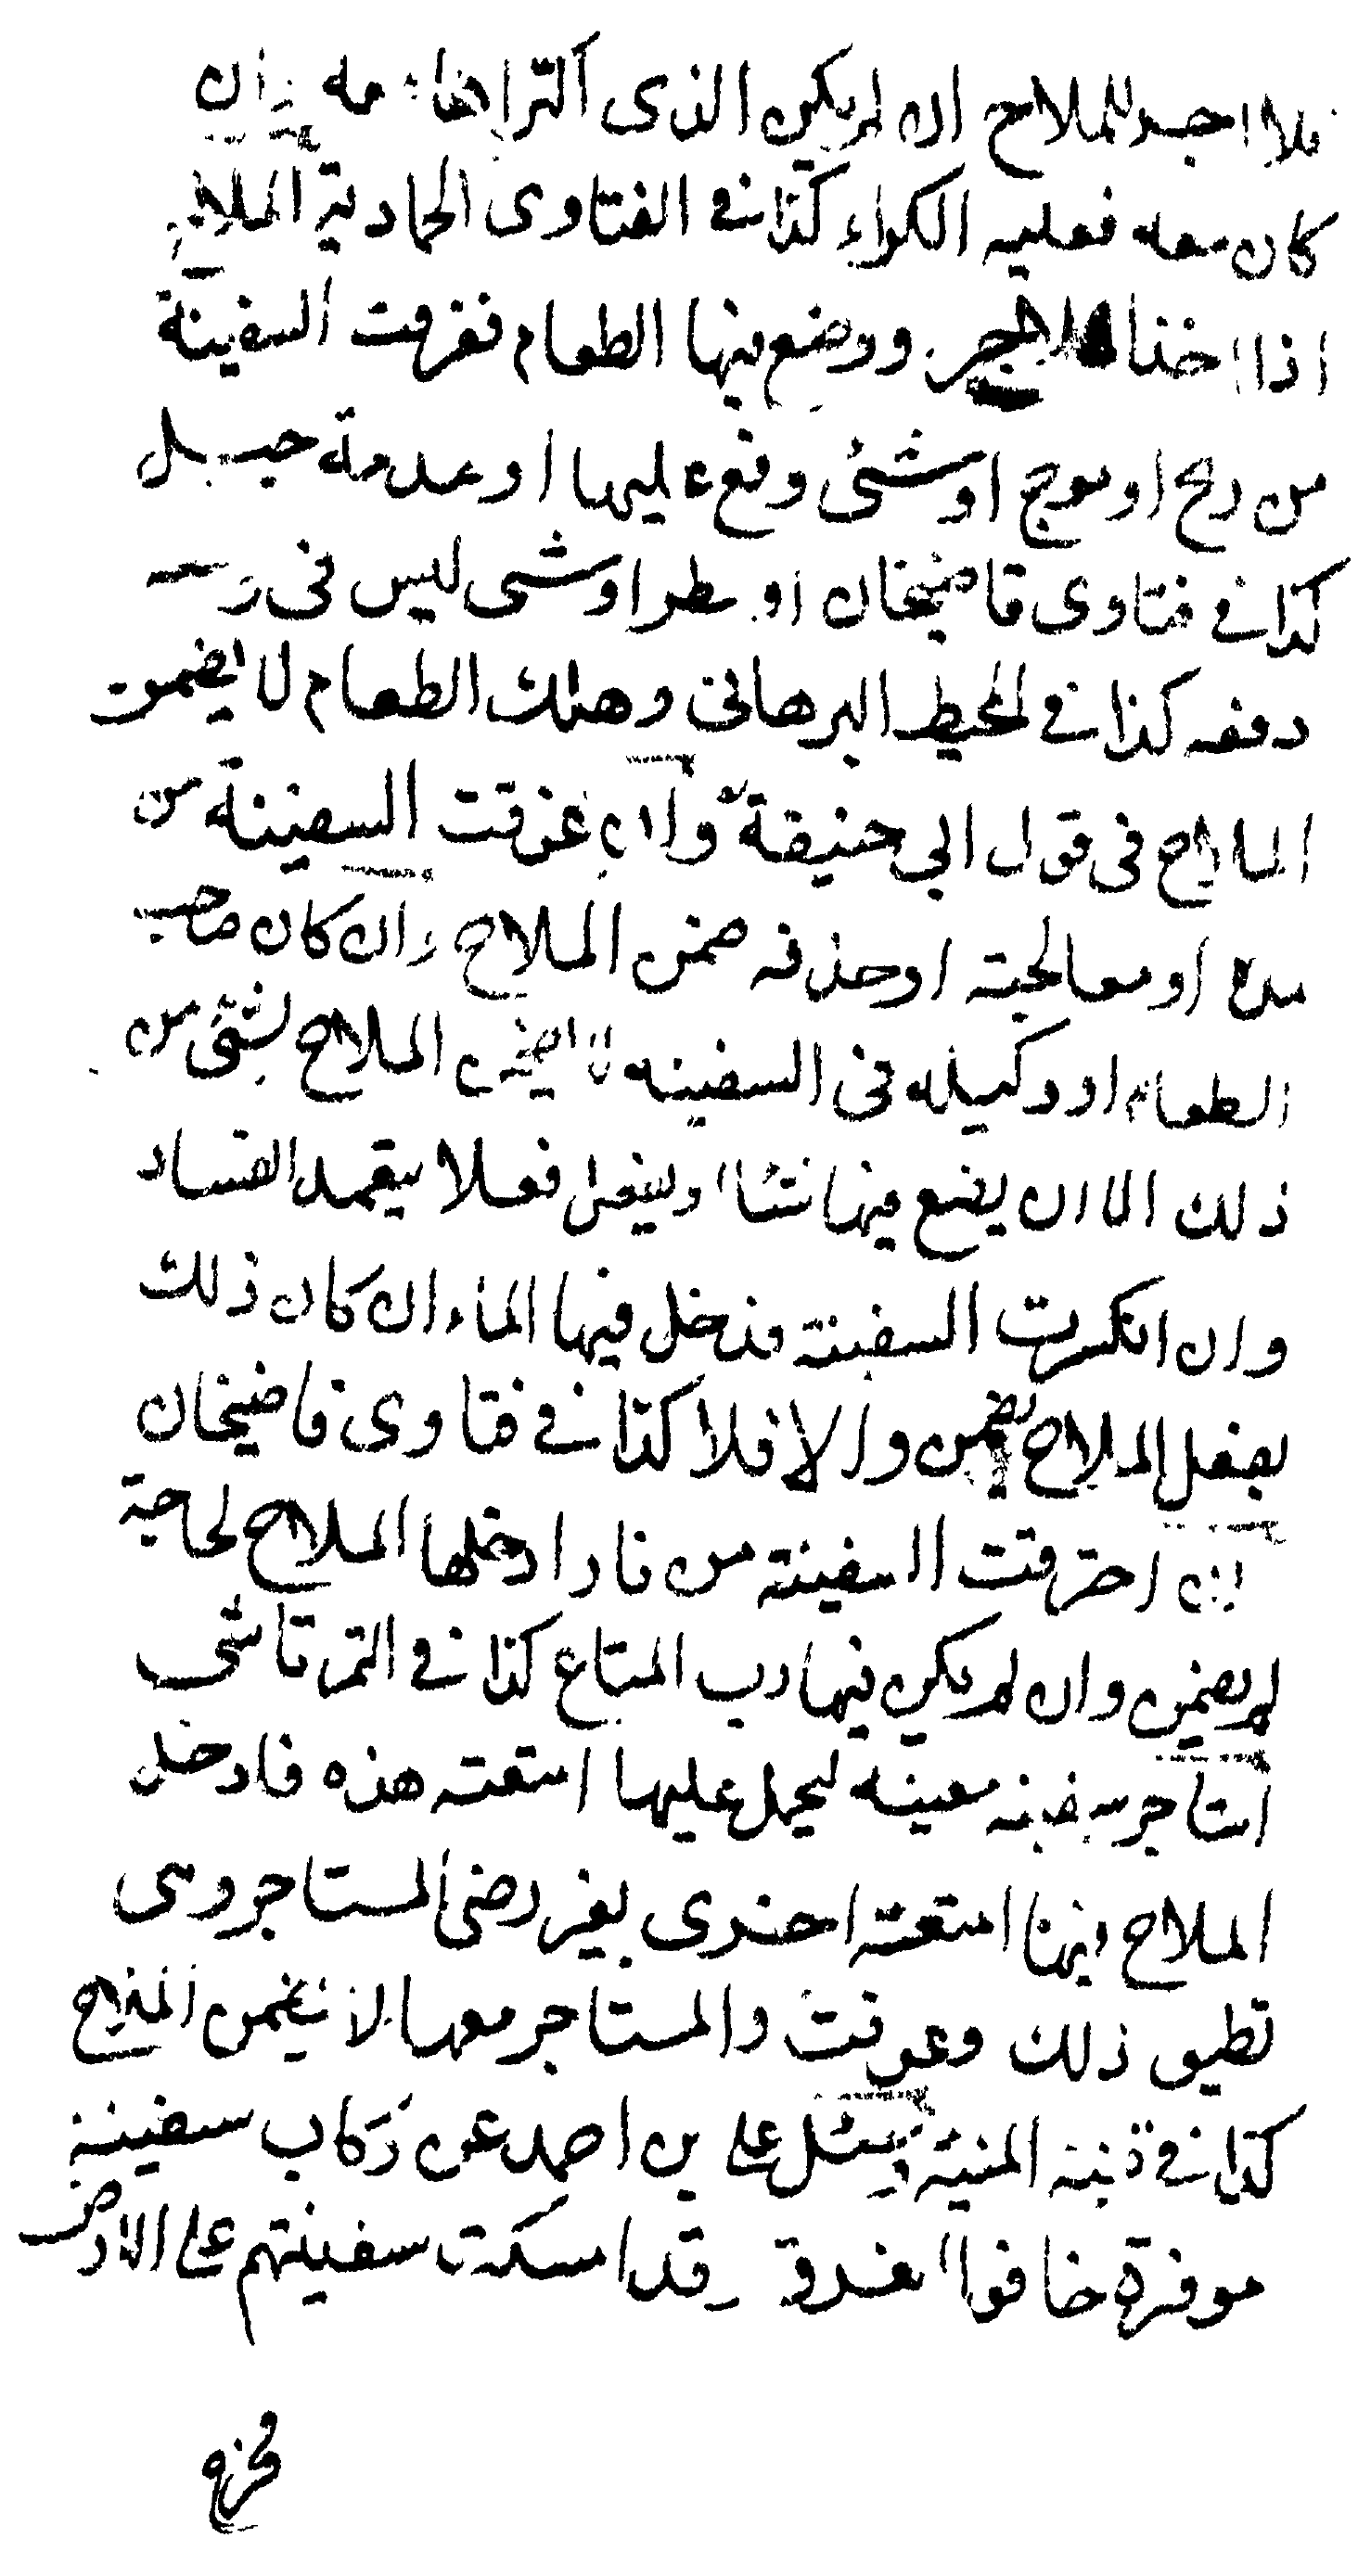 فلا اجر للملاح ان لم يكن الذى اكتراها معه وان
كان معه فعليه الكراء كذا فى الفتاوى الحمادية الملاح
اذا اخذ الاجر ووضع فيها الطعام فغرقت السفينة
من ريح او موج او شئ وقع عليها او صدمة جبل
كذا فى فتاوى قاضيخان او مطر او شى ليس فى
دفعه كذا فى المحيط البرهانى وهلك الطعام لا يضمن
الملاح فى قول ابي حنيفة وان غرقت السفينة من
مده او معالجته او حذفه ضمن الملاح وان كان صاحب
الطعام او وكيله فى السفينه لا يضمن الملاح بشئ من
ذلك الا ان يضع فيها شئا او يفعل فعلا يتعمد الفساد
وان انكسرت السفينة فدخل فيها الماء ان كان ذلك
بفعل الملاح يضمن والا فلا كذا فى فتاوى قاضيخان
وان احترقت السفينة من نار ادخلها الملاح لحاجة
لم يضمن وان لم يكن فيها رب المتاع كذا فى التمرتاشى
استاجر سفينه معينه ليحمل عليها امتعته هذه فادخل
الملاح فيها امتعة اخرى بغير رضى المستاجر وهى
تطيق ذلك وغرقت والمستاجر معها لا يضمن الملاح
كذا فى قنية المنية وسئل على بن احمد عن ركاب سفينة
موقرة خافوا الغرق وقد امسكت سفينتهم على الارض